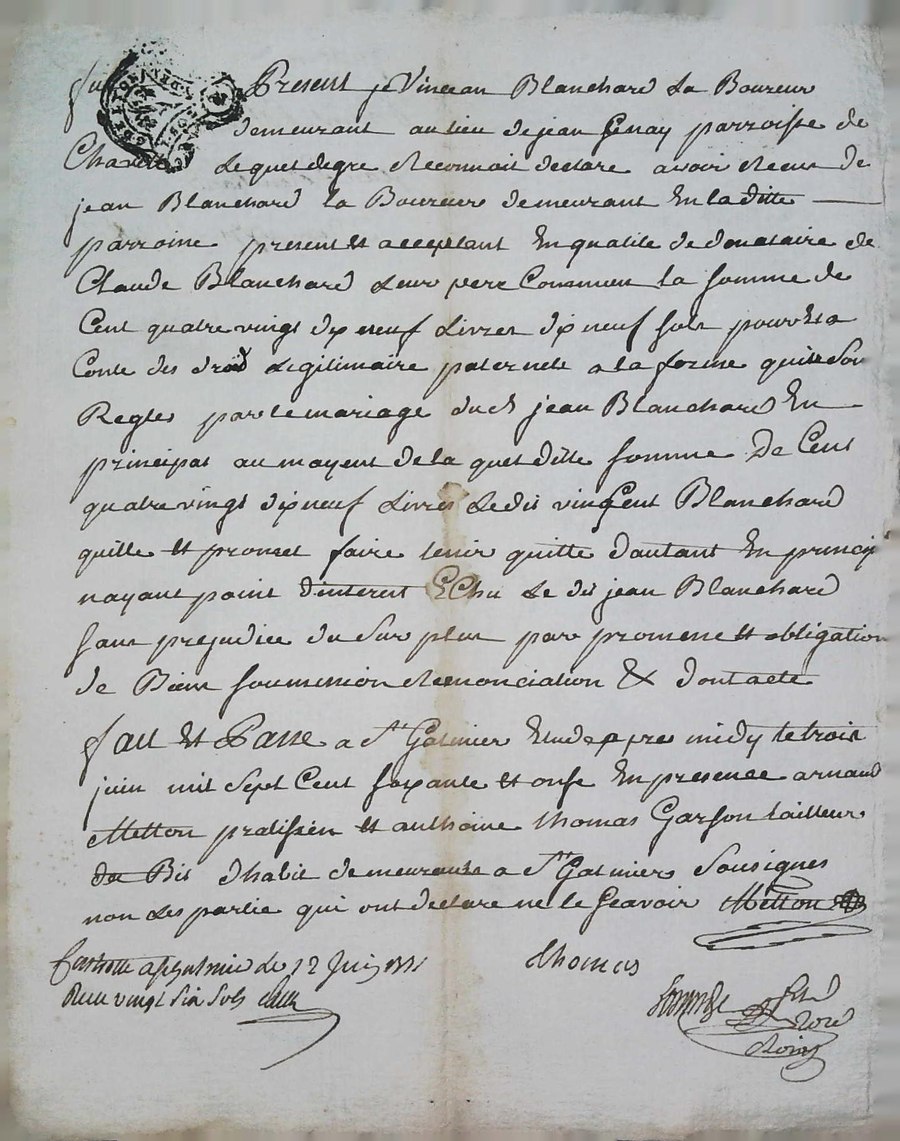 fut Present je Vincean Blanchard La Boureur
demeurant au lieu de jean Genay parroisse de
Lequel de gre Reconnoit declare avoir Receu de
jean Blanchard la Boureur demeurant En la ditte
parroine present et acceptant En qualite de donataire de
Claude Blanchard Leur pere Commun la somme de
Cent quatre vingt dix neuf Livres dix neuf sols pour
Conte des droit Legitimaire paternele a la forme quils son
Regles par le mariage dud jean Blanchard En
principal au moyent de la quel ditte somme De Cent
quatre vingt dix neuf Livres Ledit vincent Blanchard
quitte et promet faire tenir quitte dautant En princip
nayant point dinterest Echu Le dit jean Blanchard
sans prejudice du sur plus par promene et obligation
de Biens soumission Renonciation & dont acte
fait Et Passe a St Galmier Etude appres midy le trois
juin mil sept Cent soixante et onse En presence arnaud
Metton pratissien et anthoine thomas Garson tailleur
dhabit demeurant a St Galmier Sousignes
non Les partie qui ont declare ne le Scavoir Metton
thomas
a St Galmier Le 12 Juin 1771
Recu vingt six sols